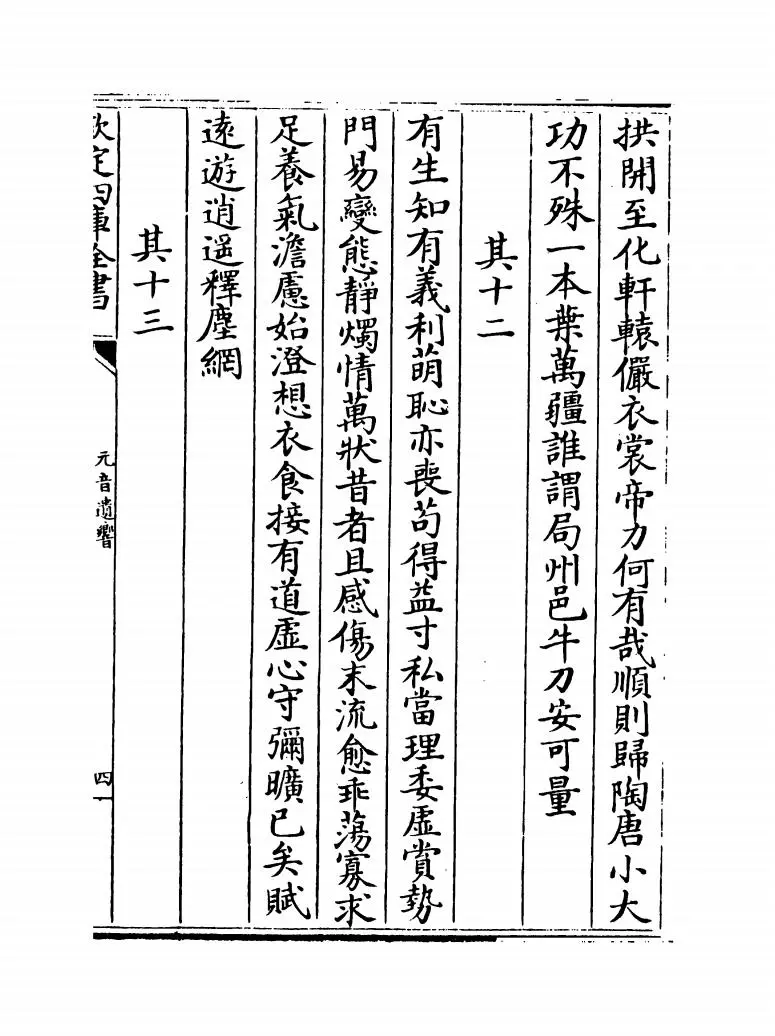 拱開至化軒轅儼衣裳帝力何有哉順則歸陶唐小大
功不殊一本葉萬疆誰謂局州邑牛刀安可量
其十二
有生知有義利萌恥亦喪苟得益寸私當理委虛賞勢
門易變態靜燭情萬狀昔者且感傷末流愈乖蕩寡求
足養氣澹慮始澄想衣食接有道虛心守彌曠已矣賦
遠遊逍遥釋塵網
其十三
欽定四庫全書
元音遺響
四